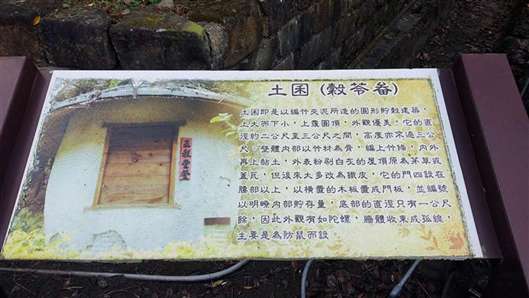 土囷 (穀苓畚)
土囷即是以編竹夾泥所造的圓形貯穀建築，
上大而下小，上覆圓頂，外觀優美，它的直
徑約二公尺至三公尺之間，高度亦不過三公
尺，整體內部以竹材為骨，編上竹條，內外
再上黏土，外表粉刷白灰的屋頂原為茅草或
蓋瓦，但後來大多改為鐵皮，它的門四設在
腰部以上，以橫置的木板疊成門板，並編號
以明瞭內部貯存量，底部的直徑只有一公尺
餘，因此外觀有如陀螺，牆體收束成弧線，
主要是為防鼠而設。
五穀豐登